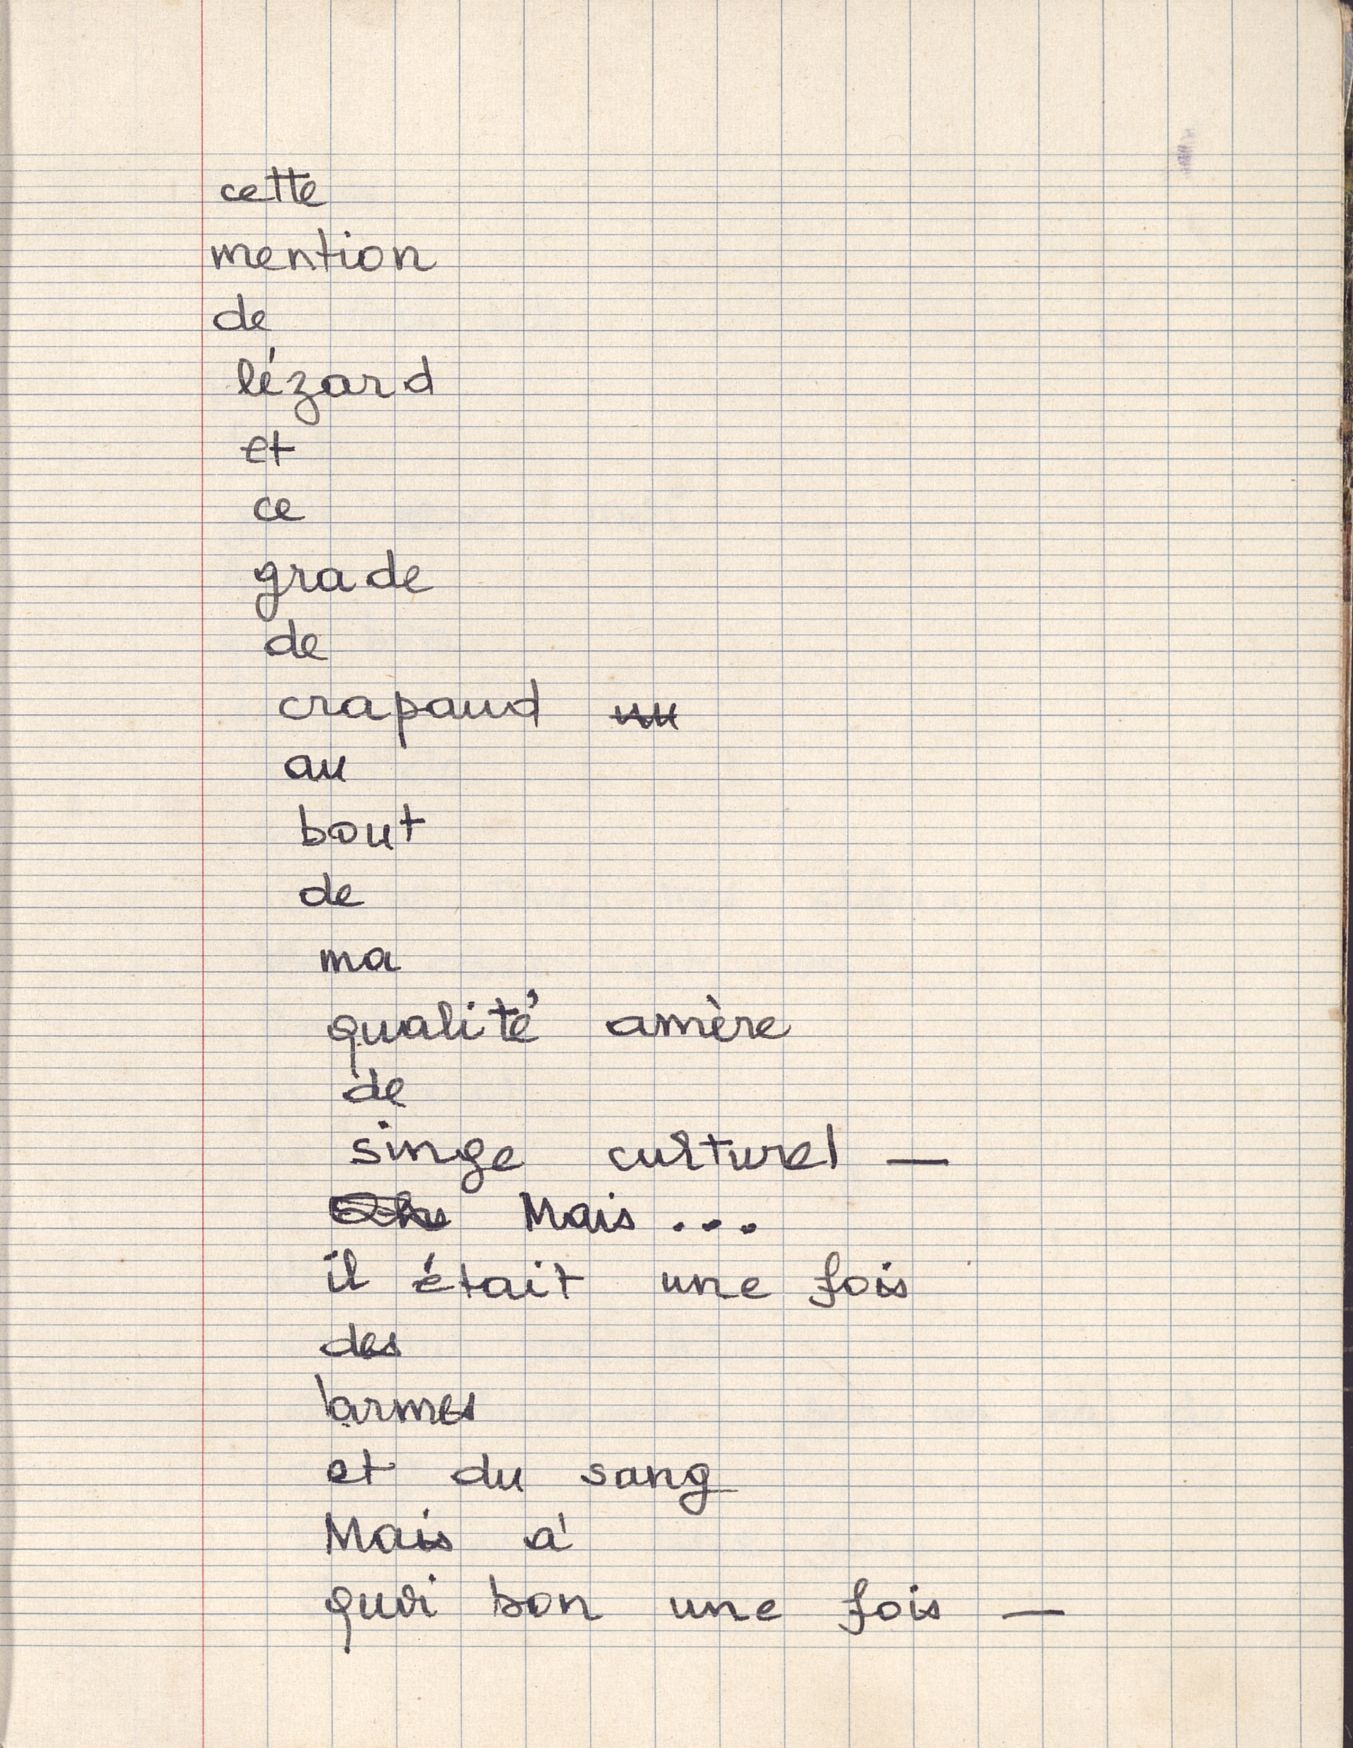 cette
mention
de
lézard
et
ce
grade
de
crapaud
au
bout
de
ma
qualité amère
de
singe culturel —
Mais ...
il était une fois
des
larmes
et du sang
Mais à
quoi bon une fois —